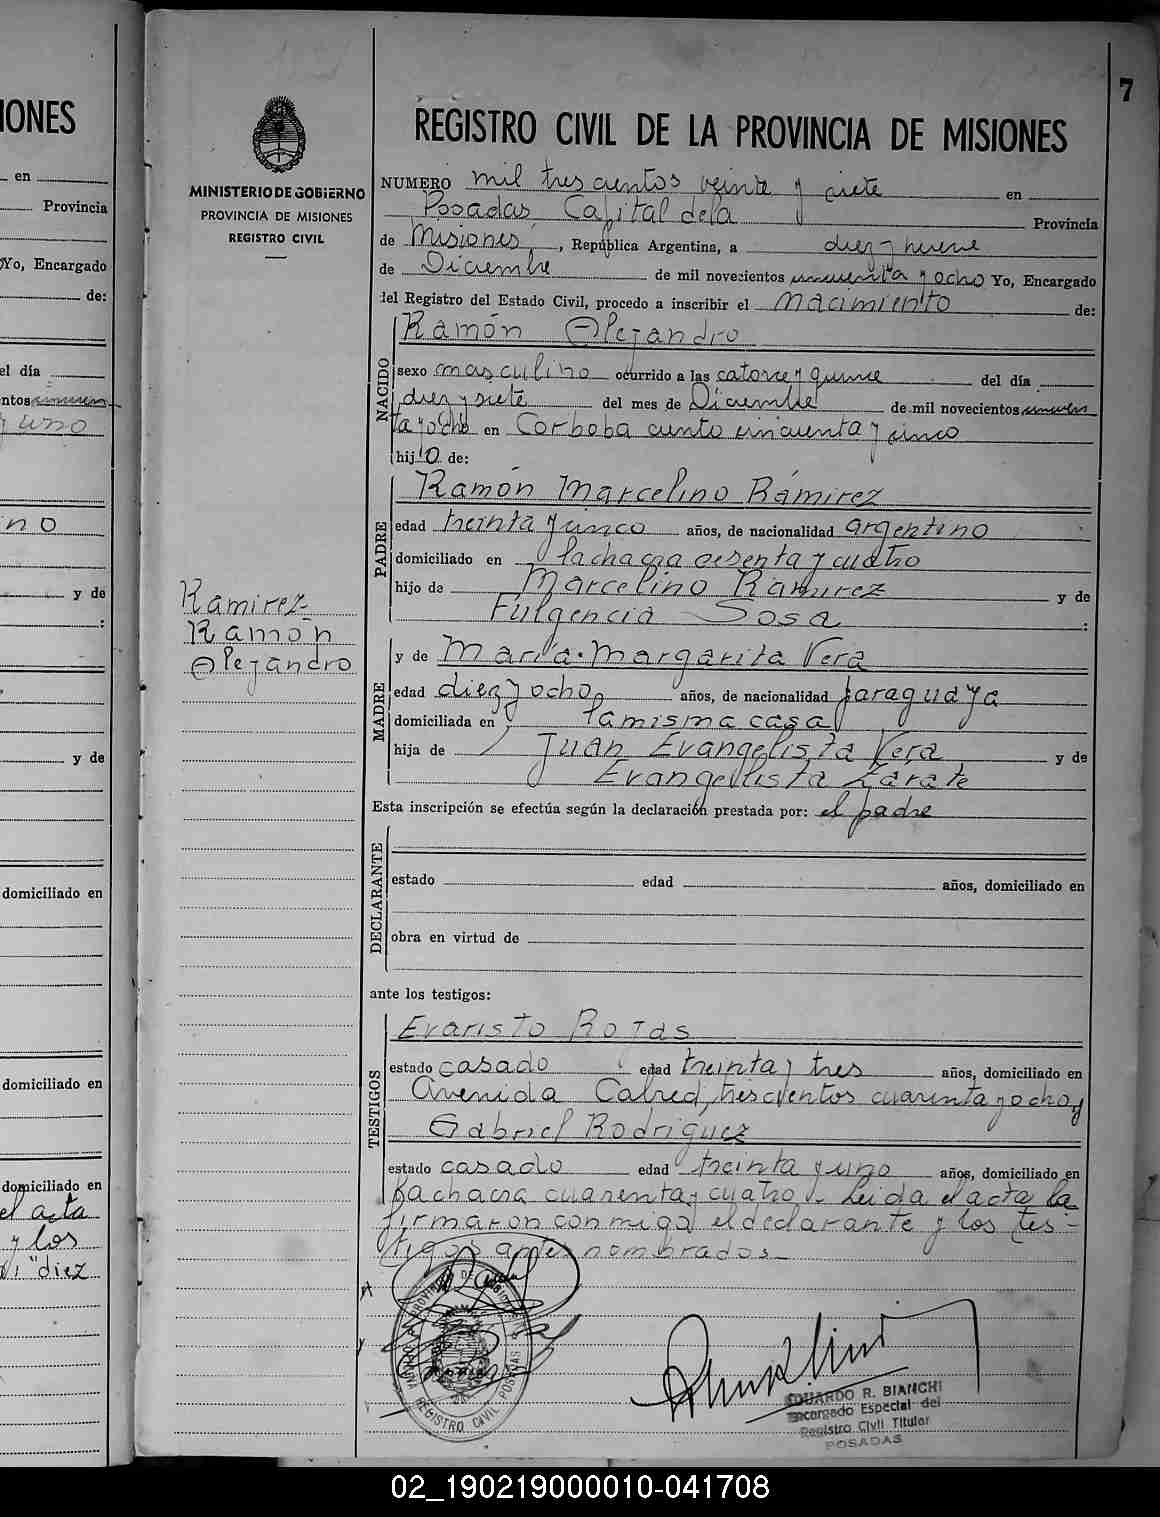 IONES
en
Provincia
Yo, Encargado
de:
el día
ntos
y uno
ino
y de
:
y de
domiciliado en
domiciliado en
domiciliado en
el acta
y los
diez
7
MINISTERIO DE GOBIERNO
PROVINCIA DE MISIONES
REGISTRO CIVIL
Ramirez
Ramón
Alejandro
REGISTRO CIVIL DE LA PROVINCIA DE MISIONES
NUMERO mil trescientos veinte y siete en
Posadas Capital dela Provincia
de Misiones, República Argentina, a diez y nueve
de Diciembre de mil novecientos cincuenta y ocho Yo, Encargado
del Registro del Estado Civil, procedo a inscribir el nacimiento de:
NACIDO
Ramón Alejandro
sexo masculino ocurrido a las catorce y quince del día
diez y siete del mes de Diciembre de mil novecientos cincuen
ta y ocho en Corboba ciento cincuenta y cinco
hijo de:
PADRE
Ramón Marcelino Rámirez
edad treinta y cinco años, de nacionalidad argentino
domiciliado en la chacra sesenta y cuatro
hijo de Marcelino Ramirez y de
Fulgencia Sosa :
MADRE
y de María Margarita Vera
edad diez y ocho años, de nacionalidad paraguaya
domiciliada en la misma casa
hija de Juan Evangelista Vera y de
Evangelista Zarate
Esta inscripción se efectúa según la declaración prestada por: el padre
DECLARANTE
estado edad años, domiciliado en
obra en virtud de
ante los testigos:
TESTIGOS
Evaristo Rojas
estado casado edad treinta y tres años, domiciliado en
Avenida Cabred, trescientos cuarenta y ocho y
Gabriel Rodriguez
estado casado edad treinta y uno años, domiciliado en
la chacra cuarenta y cuatro. Leida el acta la
firmaron conmigo el declarante y los tes-
tigos antes nombrados
REGISTRO CIVIL POSADAS
EDUARDO R. BIANCHI
Encargado Especial del
Registro Civil Titular
POSADAS
02_190219000010-041708